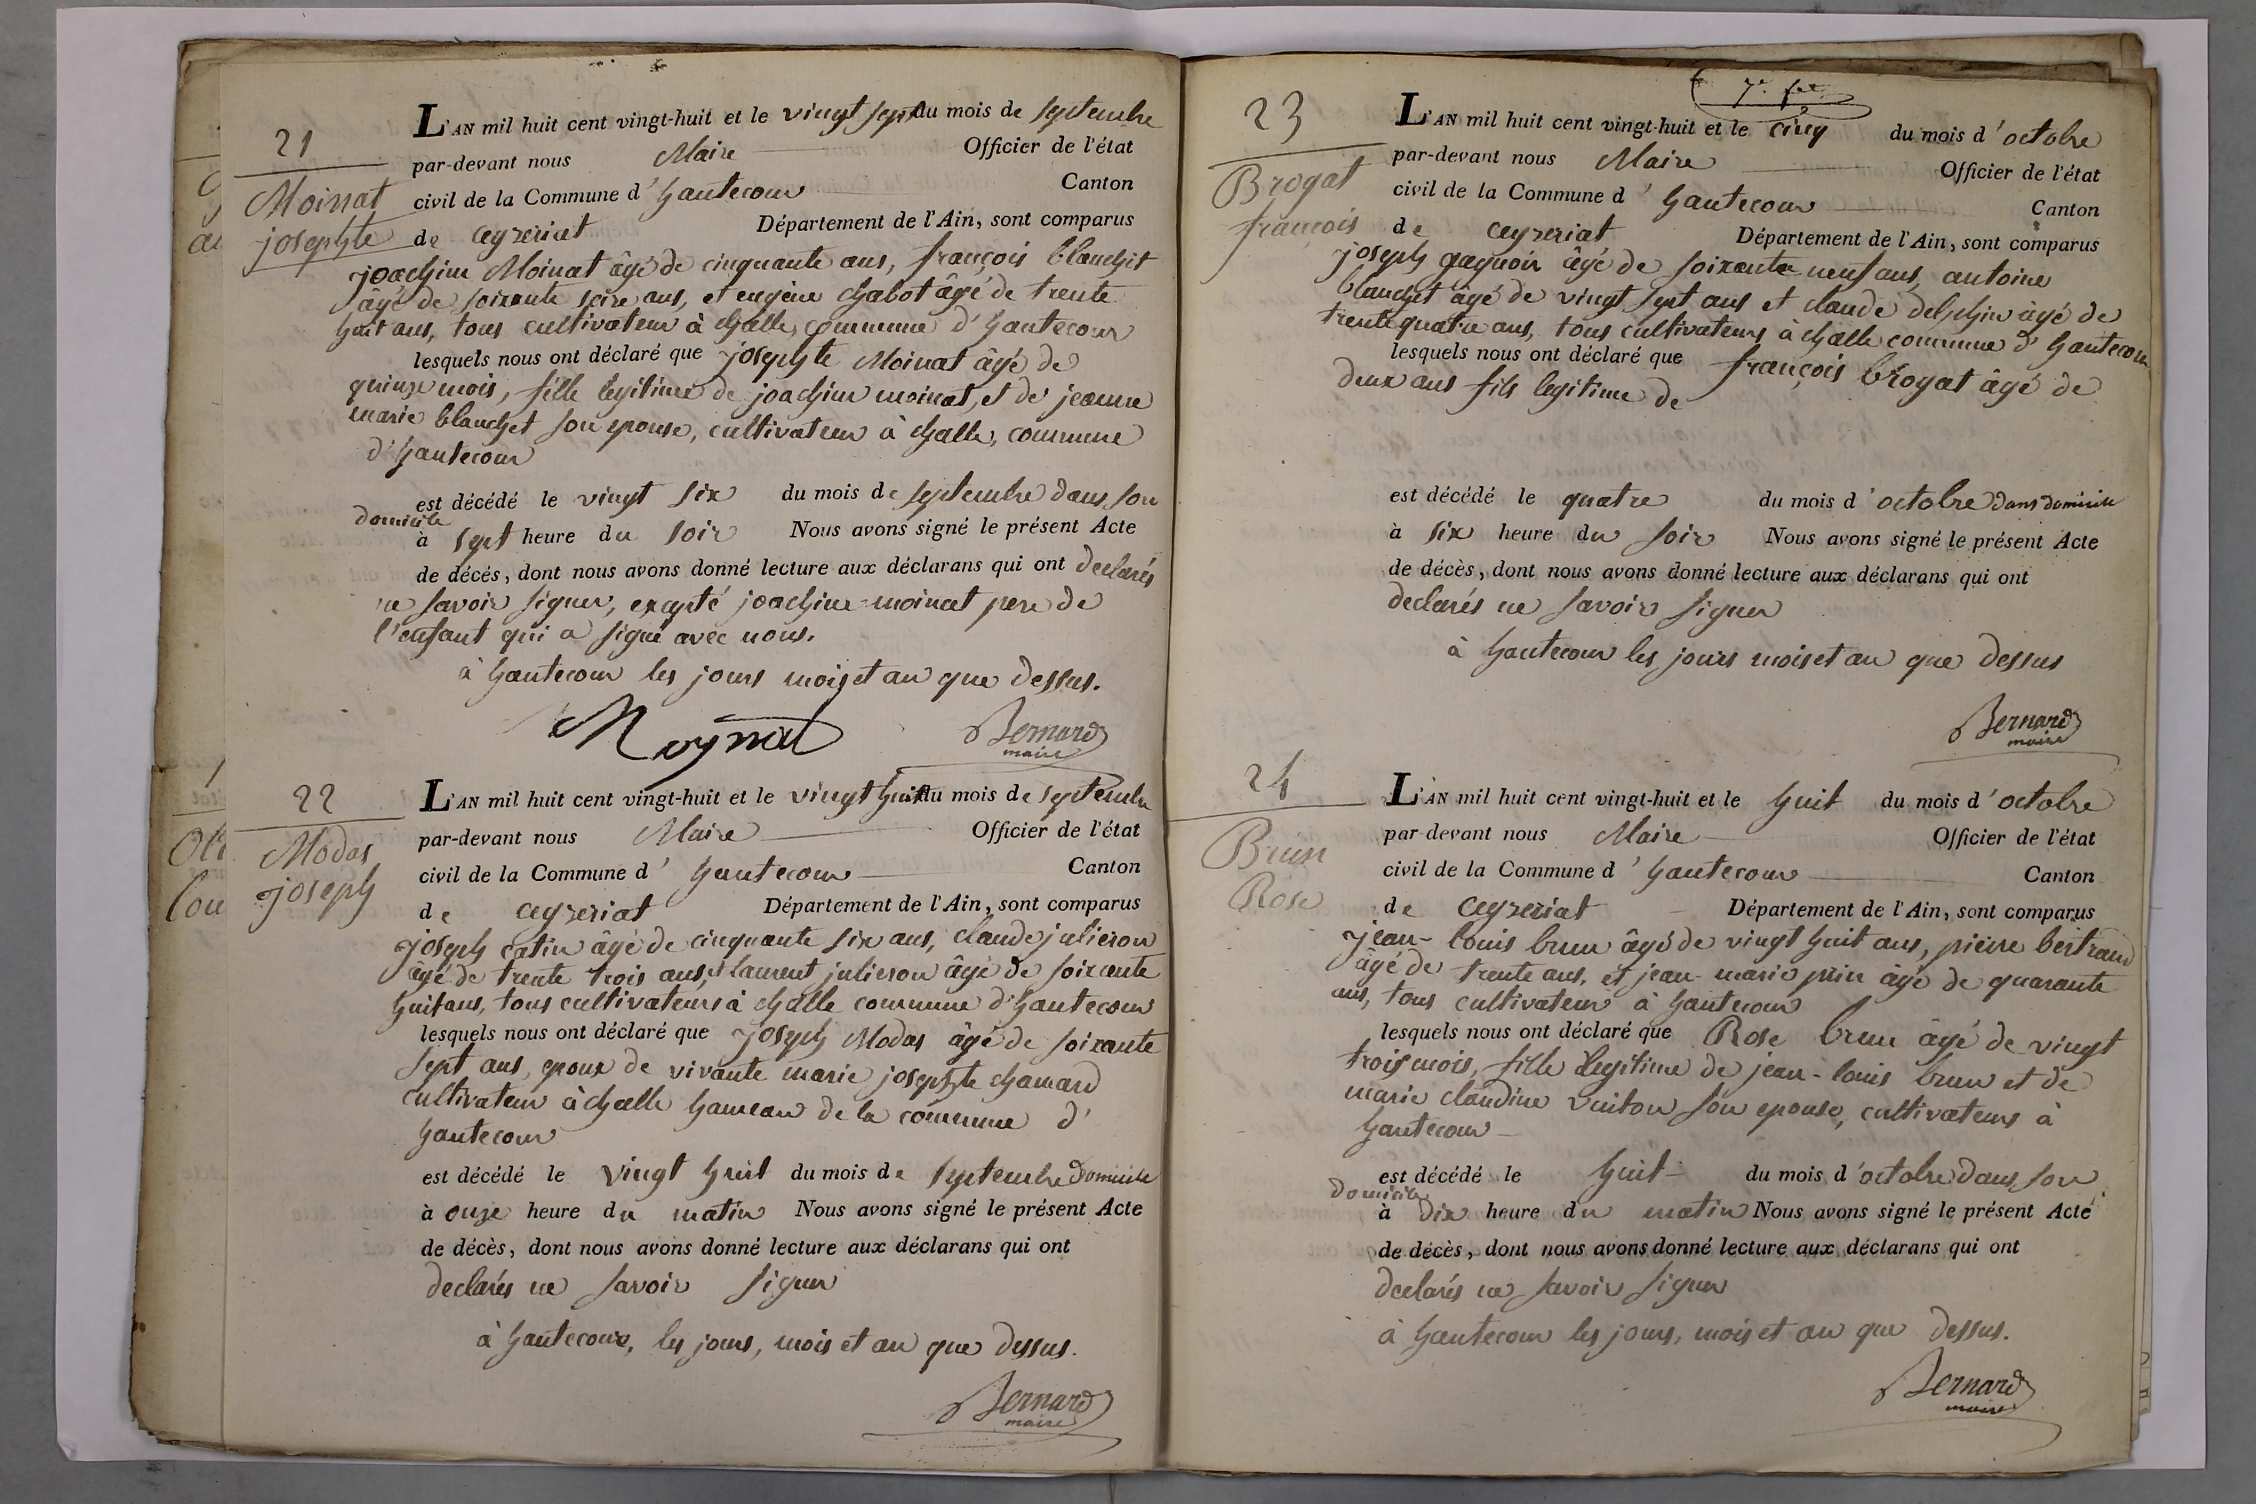 21
Moinat
josephte
L'AN mil huit cent vingt-huit et le vingt sept du mois de septembre
par-devant nous Maire Officier de l'état
civil de la Commune d' hautecour Canton
de ceyzeriat Département de l'Ain, sont comparus
joachim Moinat âgé de cinquante ans, françois blanchet
âgé de soixante seize ans, et eugène chabot âgé de trente
huit ans, tous cultivateur à challe, commune d'hautecour
lesquels nous ont déclaré que josephte Moinat âgé de
quinze mois, fille legitime de joachim moinat, et de jeanne
marie blanchet son epouse, cultivateur à challe, commune
d'hautecour
est décédé le vingt six du mois de septembre dans son
domicile
à sept heure du soir Nous avons signé le présent Acte
de décés, dont nous avons donné lecture aux déclarans qui ont declarés
ne savoir signer, excepté joachim moinat pere de
l'enfant qui a signé avec nous.
à hautecour les jours mois et an que dessus.
Moynat Bernard
maire
22
Modas
joseph
L'AN mil huit cent vingt-huit et le vingt huit du mois de septembre
par-devant nous Maire Officier de l'état
civil de la Commune d' hautecour Canton
de ceyzeriat Département de l'Ain, sont comparus
joseph catin âgé de cinquante six ans, claude julieron
âgé de trente trois ans, et laurent julieron âgé de soixante
huit ans, tous cultivateurs à challe commune d'hautecour
lesquels nous ont déclaré que joseph Modas âgé de soixante
sept ans, epoux de vivante marie josephte chanard
cultivateur à challe hameau de la commune d'
hautecour
est décédé le vingt huit du mois de septembre domicile
à onze heure du matin Nous avons signé le présent Acte
de décès, dont nous avons donné lecture aux déclarans qui ont
declarés ne savoir signer
à hautecour, les jours, mois et an que dessus.
Bernard
maire
7e. fet
23
Brogat
françois
L'AN mil huit cent vingt-huit et le cinq du mois d'octobre
par-devant nous Maire Officier de l'état
civil de la Commune d'hautecour Canton
de ceyzeriat Département de l'Ain, sont comparus
joseph gagnoir âgé de soixante neuf ans, antoine
blanchet âgé de vingt sept ans et claude delphin âgé de
trente quatre ans, tous cultivateurs à challe commune d'hautecour
lesquels nous ont déclaré que françois brogat âgé de
deux ans fils legitime de
est décédé le quatre du mois d'octobre dans domicile
à six heure du soir Nous avons signé le présent Acte
de décès, dont nous avons donné lecture aux déclarans qui ont
declarés ne savoir signer
à hautecour les jours mois et an que dessus
Bernard
maire
24
Brun
Rose
L'AN mil huit cent vingt-huit et le huit du mois d'octobre
par-devant nous Maire Officier de l'état
civil de la Commune d'hautecour Canton
de ceyzeriat Département de l'Ain, sont comparus
jean-louis brun âgé de vingt huit ans, pierre bertrand
âgé de trente ans, et jean-marie prin âgé de quarante
ans, tous cultivateur à hautecour
lesquels nous ont déclaré que Rose brun âgé de vingt
trois mois, fille legitime de jean-louis brun et de
marie claudine vuiton son epouse, cultivateurs à
hautecour
est décédé le huit du mois d'octobre dans son
domicile
à dix heure du matin Nous avons signé le présent Acte
de décès, dont nous avons donné lecture aux déclarans qui ont
declarés ne savoir signer
à hautecour les jours, mois et an que dessus.
Bernard
maire